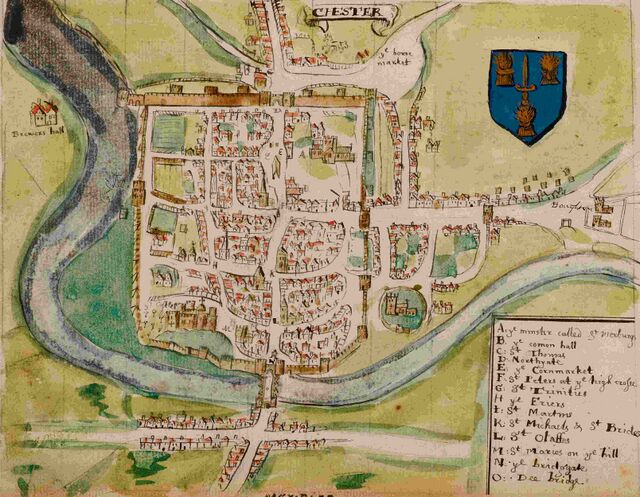 CHESTER
ye horse
market
Brewers hall
Boughton
A: ye minster called St werburgs
B. ye comon hall
C: St Thomas
D: Northgate
E: ye Cornmarket
F: St Peters at ye high crosse
G: St Trinities
H ye Friers
I: St Martins
K: St Michaels & St Brides
L: St Olaffes
M: St Maries on ye hill
N: ye bridggate
O: Dee bridge